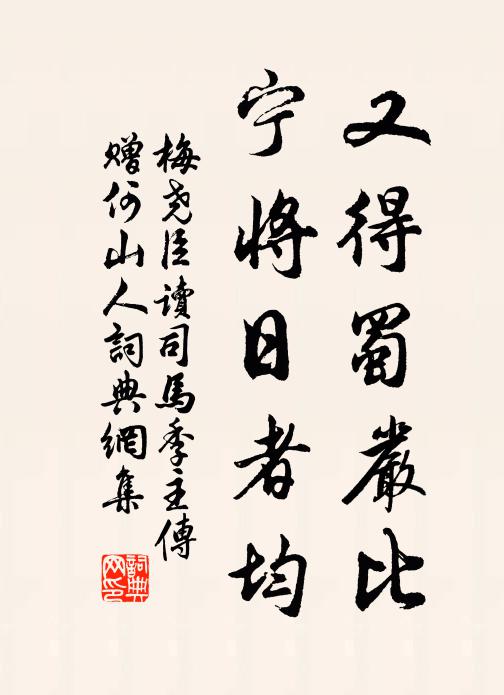 又得蜀嚴比
宁將日者均
梅尧臣讀司馬季主傳
贈何山人詞典網集
詞典
网印